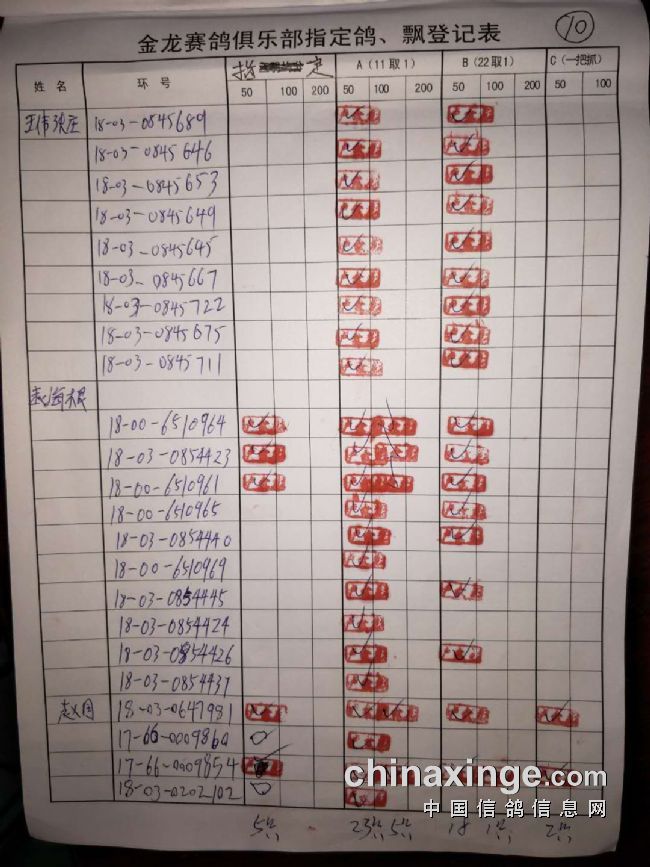 10
金龙赛鸽俱乐部指定鸽、飘登记表
姓名 环号 指定 A(11取1) B(22取1) C(一把抓)
50 100 200 50 100 200 50 100 200 50 100
18-03-0845689
18-03-0845646
18-03-0845653
18-03-0845649
18-03-0845645
18-03-0845667
18-03-0845722
18-03-0845675
18-03-0845711
18-00-6510964
18-03-0854423
18-00-6510961
18-00-6510965
18-03-0854440
18-00-6510969
18-03-0854445
18-03-0854424
18-03-0854426
18-03-0854437
18-03-0647981
17-66-0009860
17-66-0009854
18-03-0202102
chinaxinge.com
中国信鸽信息网